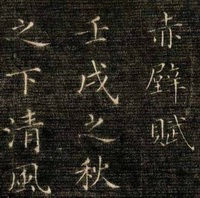 赤壁賦
壬戌之秋
之下清風